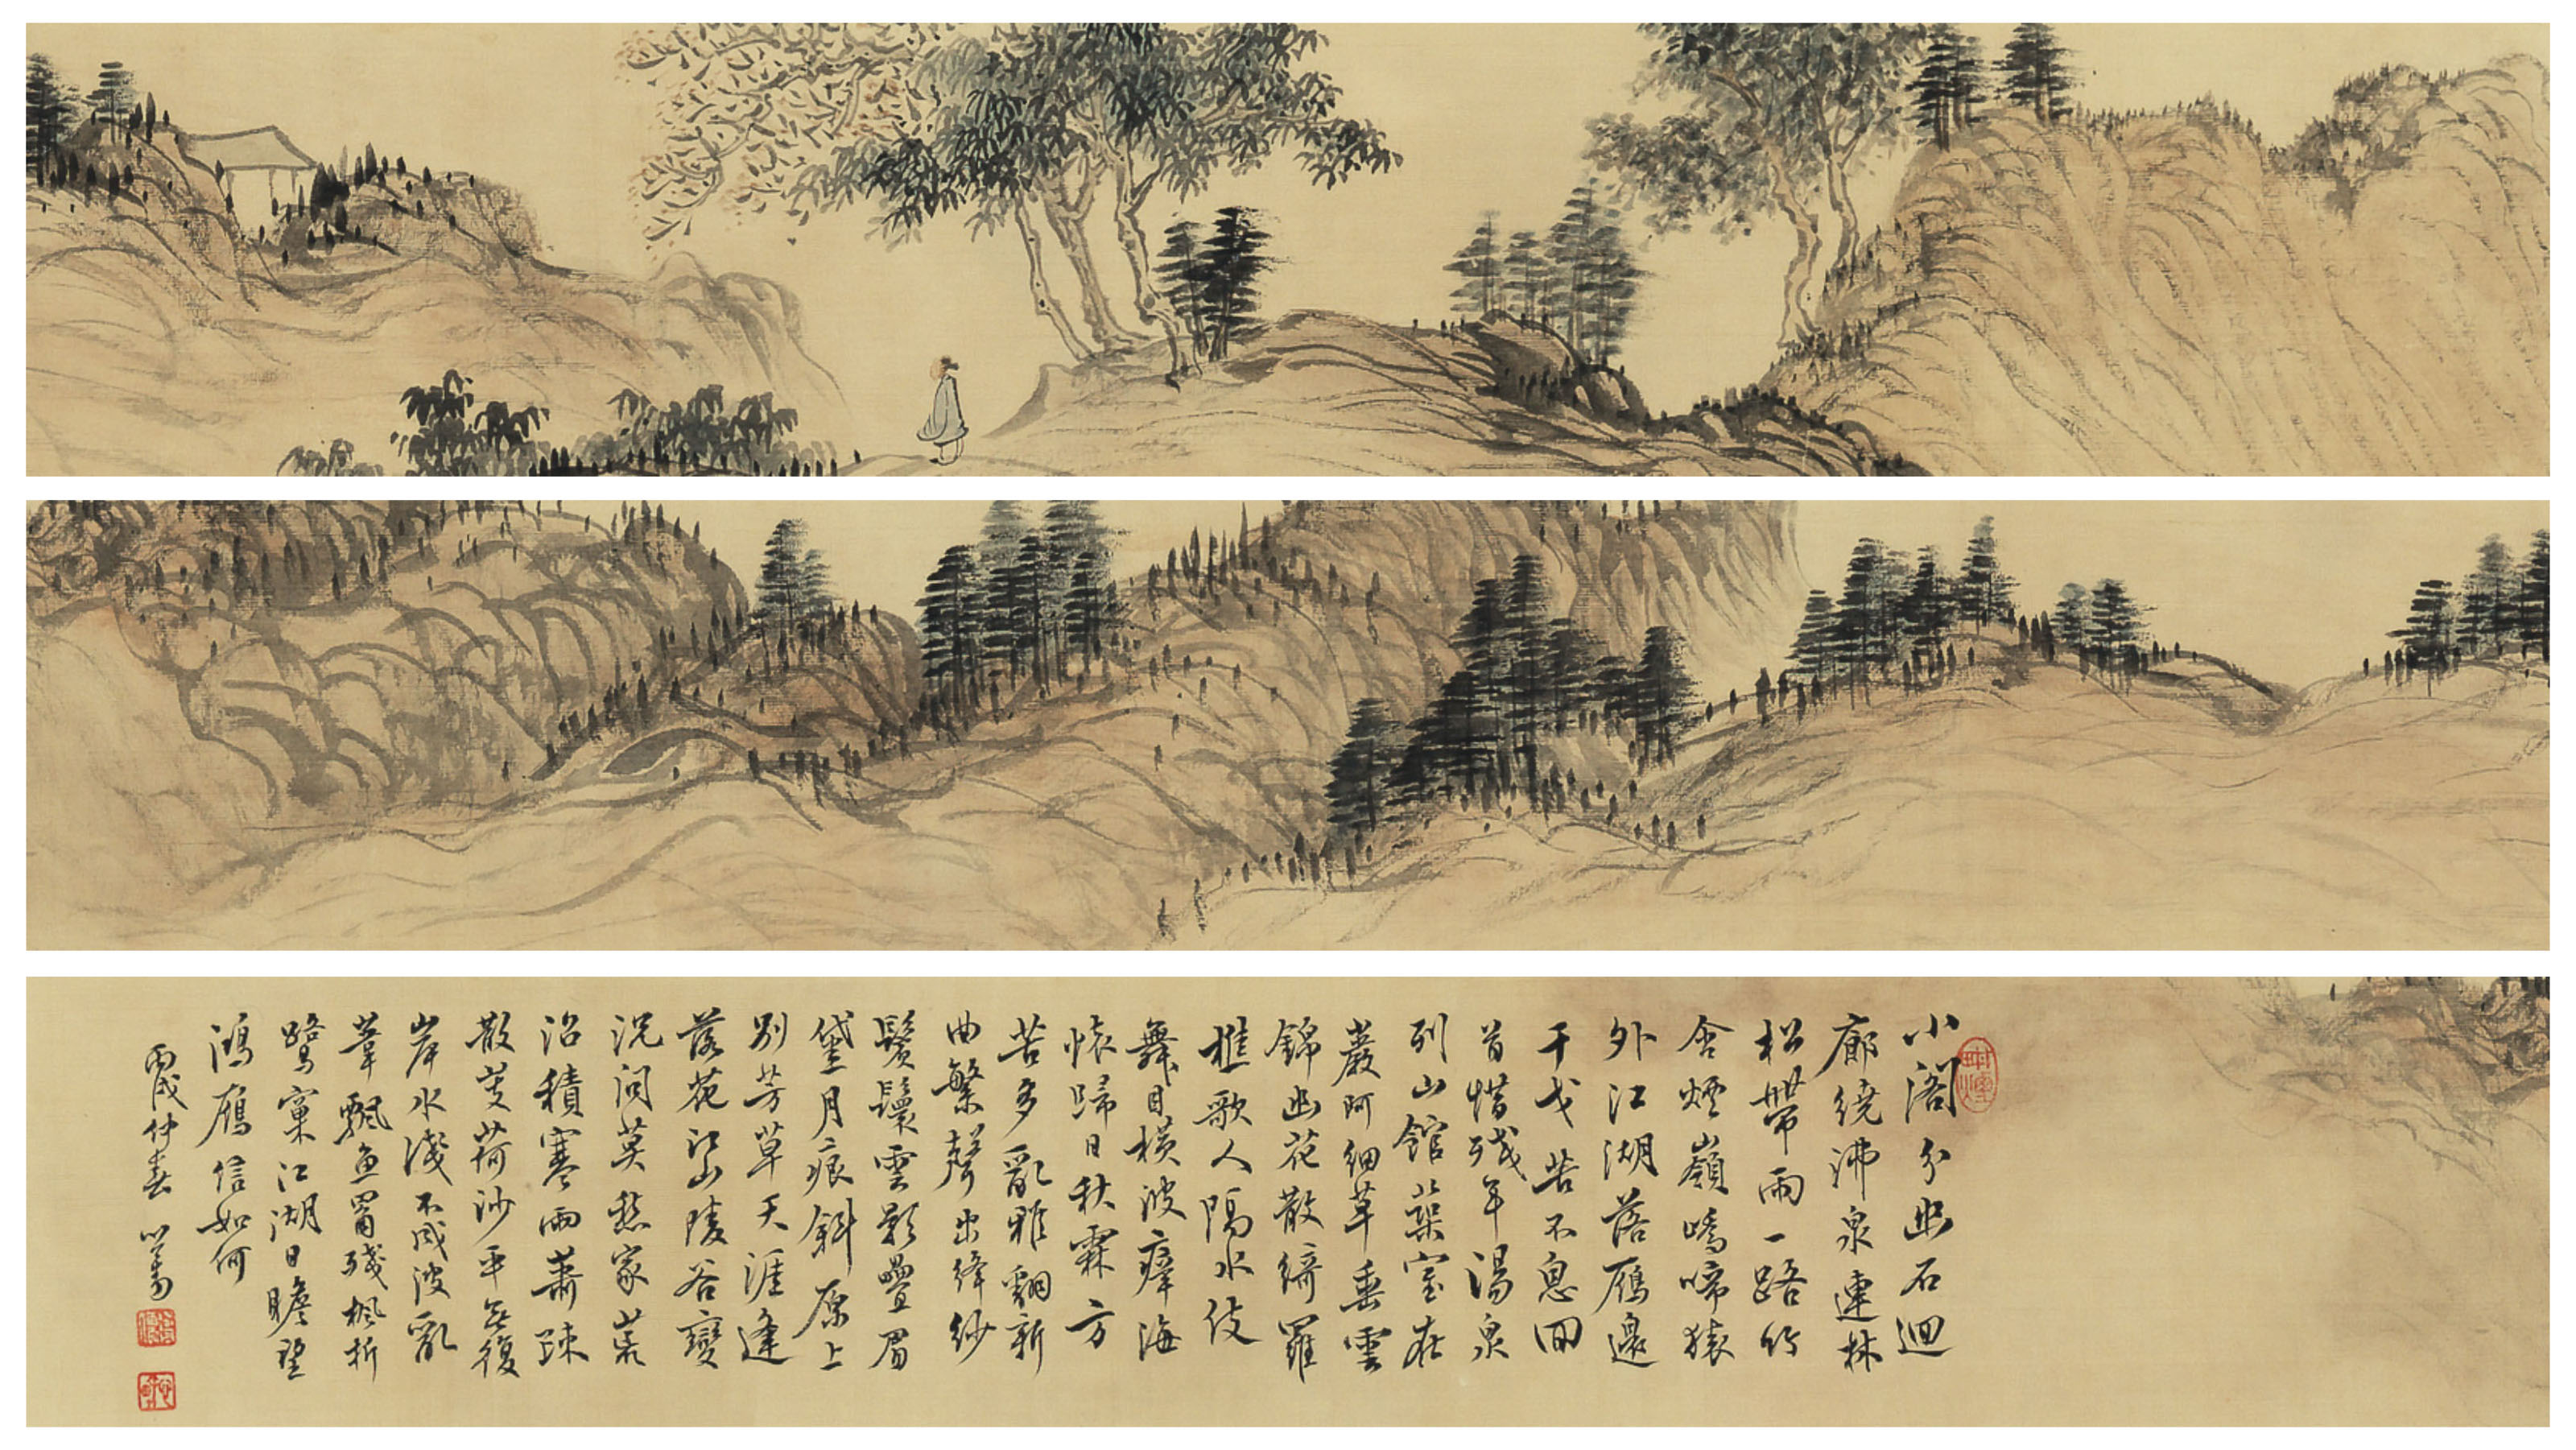 小閣分幽石迴
廊繞沸泉連林
松帶雨一路竹
含煙嶺嶠啼猿
外江湖落雁邊
干戈苦不息回
首惜殘年湯泉
列山館葉室在
巖阿細草垂雲
錦幽花散綺羅
樵歌人隔水伎
舞目橫波瘴海
懷歸日秋霖方
苦多亂雅翻新
曲繁聲出絳紗
鬢鬟雲影疊眉
黛月痕斜原上
別芳草天涯逢
落花江山陵谷變
況問莫愁家崇
沼積寒雨蕭疎
散芰荷沙平無復
岸水淺不成波亂
葦飄魚罶殘楓折
鷺窠江湖日瞻望
鴻雁信如何
丙戌仲春 心畬